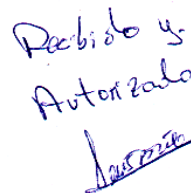 Recibido y.
Autorizado